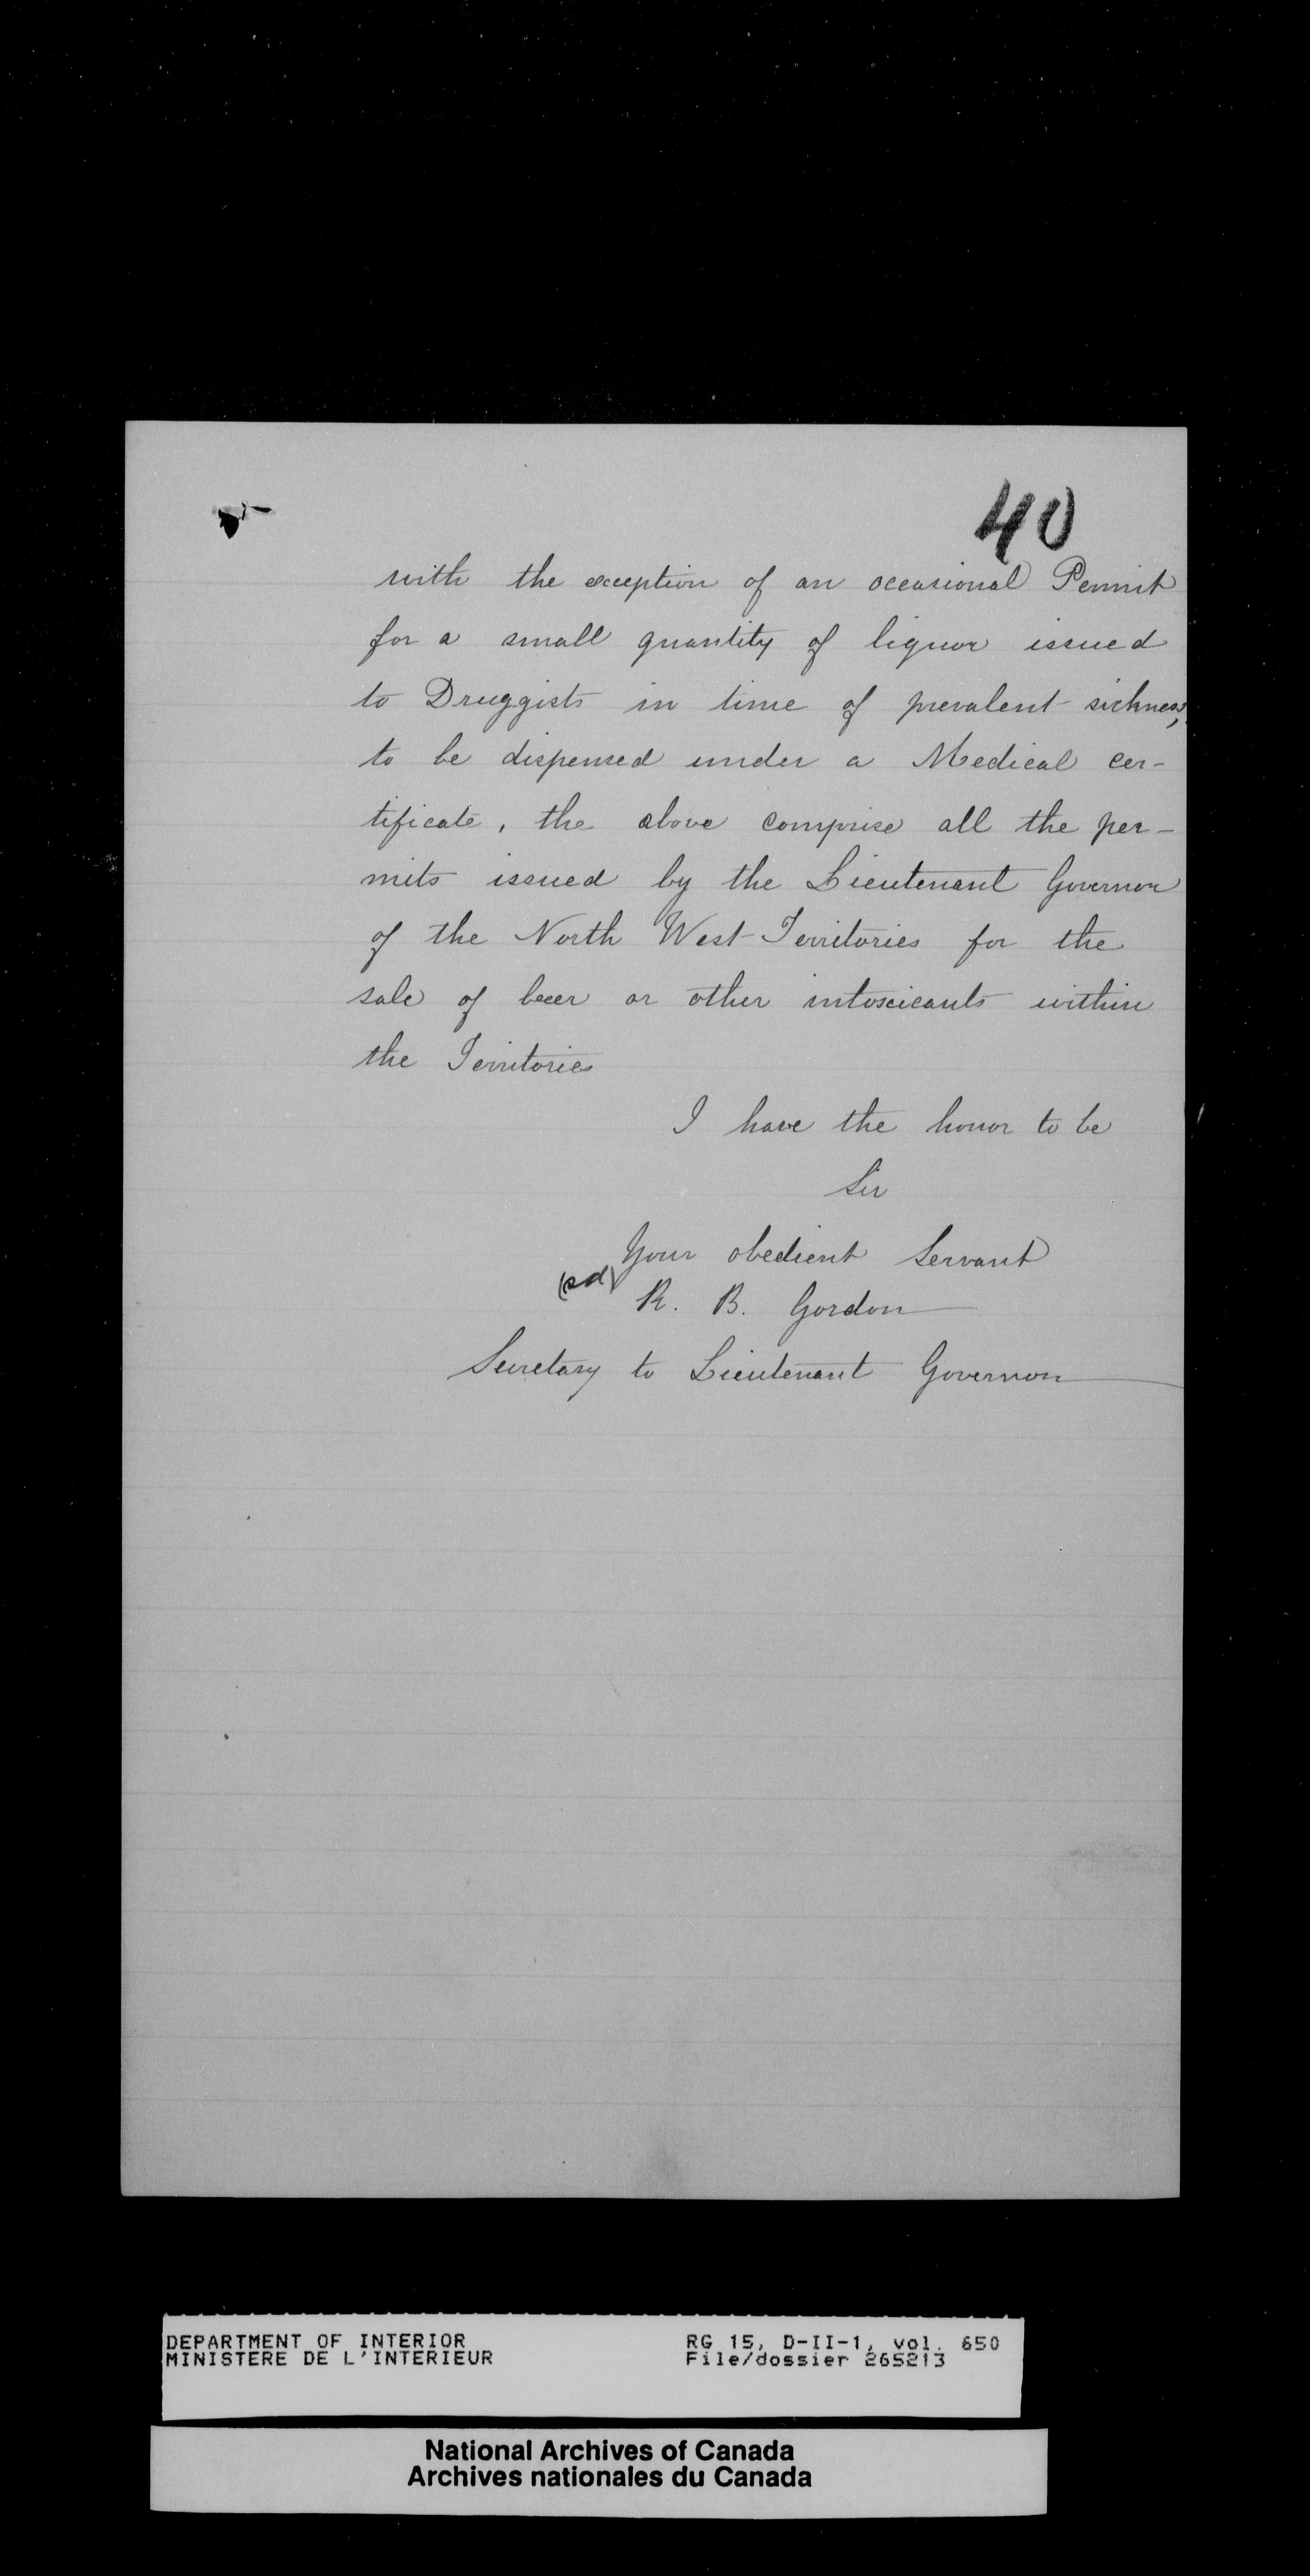 40
with the exception of an occasional Permit
for a small quantity of liquor issued
to Druggists in time of prevalent sickness,
to be dispensed under a Medical cer-
tificate, the above comprise all the per-
mits issued by the Lieutenant Governor
of the North West Territories for the
sale of beer or other intoxicants within
the Territories
I have the honor to be
Sir
Your obedient Servant
(sd) R. B. Gordon
Secretary to Lieutenant Governor
DEPARTMENT OF INTERIOR RG 15, D-II-1, vol. 650
MINISTERE DE L'INTERIEUR File/dossier 265213
National Archives of Canada
Archives nationales du Canada